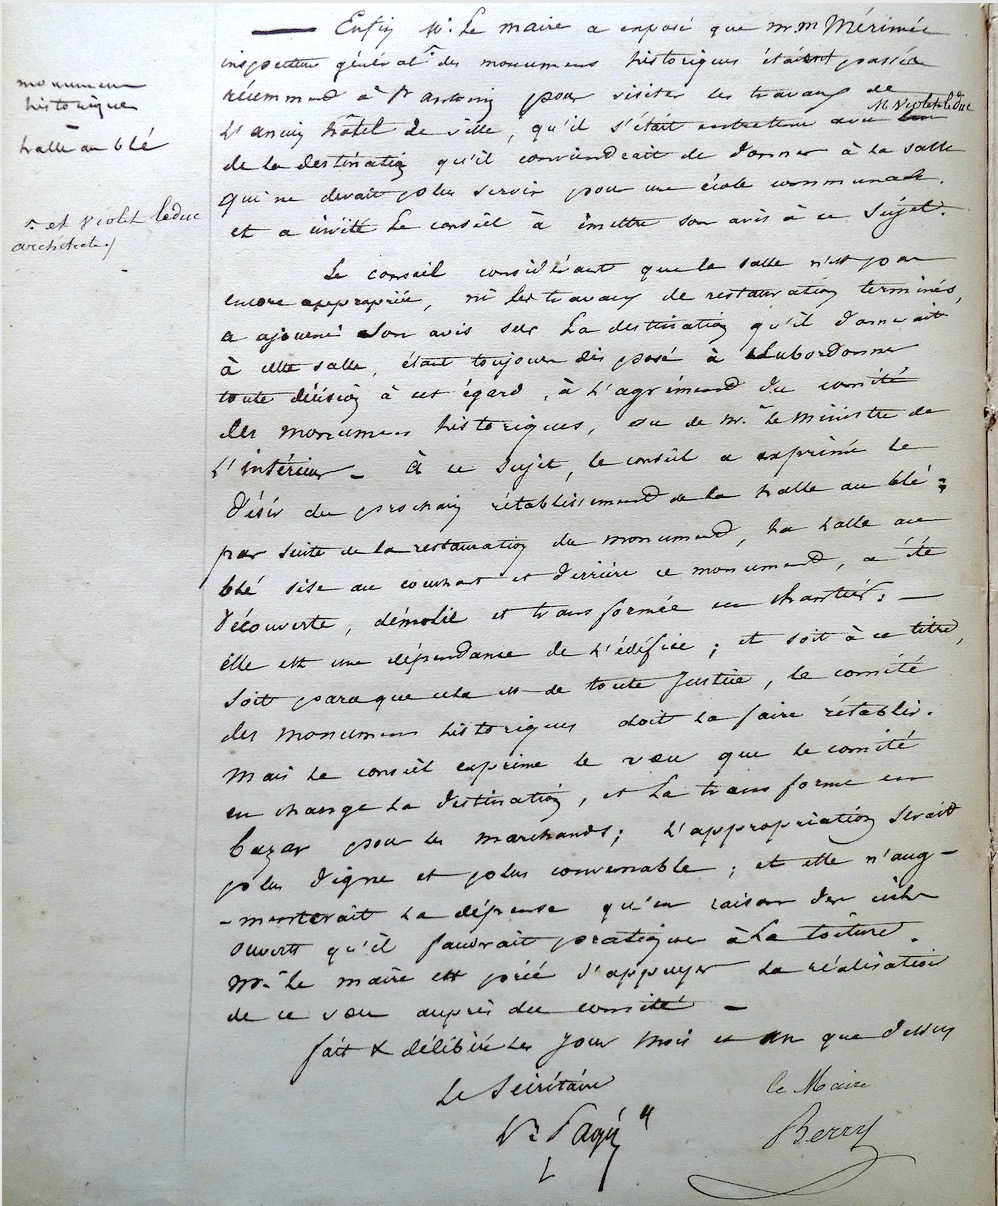 monumens
historiques
halle au blé
r. et Violet leduc
architecte./
— Enfin Mr. Le maire a exposé que mr.m Mérimée
inspecteur général r. des monumens historiques étaient passés
récemment à St antonin pour visiter les travaux de
L'ancien hôtel de ville, qu'il s'était entretenu avec M. Violet leduc
de la destination qu'il conviendrait de donner à la salle
qui ne devait plus servir pour une école communale.
et a invité Le conseil à émettre son avis à ce sujet.
Le conseil considérant que la salle n'est pas
encore appropriée, ni les travaux de restauration terminés,
a ajourné son avis sur La destination qu'il donnerait
à cette salle, étant toujours disposé à subordonner
toute décision à cet égard, à L'agrément du comité
des monumens historiques, ou de mr. le Ministre de
L'intérieur — à ce sujet, le conseil a exprimé le
désir du prochain rétablissement de la halle au blé ;
par suite de la restauration du monument, La halle au
blé sise au couchant et derrière ce monument, a été
découverte, démolie et transformée en chantier : —
élle est une dépendance de L'édifice ; et soit à ce titre,
soit parceque cela est de toute Justice, le comité
des monumens historiques doit la faire rétablir.
Mais Le conseil exprime le vœu que le comité
en change La destination, et La transforme en
bazar pour les marchands ; L'appropriation serait
plus digne et plus convenable ; et elle n'aug-
-menterait La dépense qu'en raison des ciels
ouverts qu'il faudrait pratiquer à La toiture.
Mr. Le maire est prié d'appuyer La réalisation
de ce vœu auprès du comité —
fait & délibéré Les Jour Mois et an que dessus
Le Secrétaire
le Maire
Berry